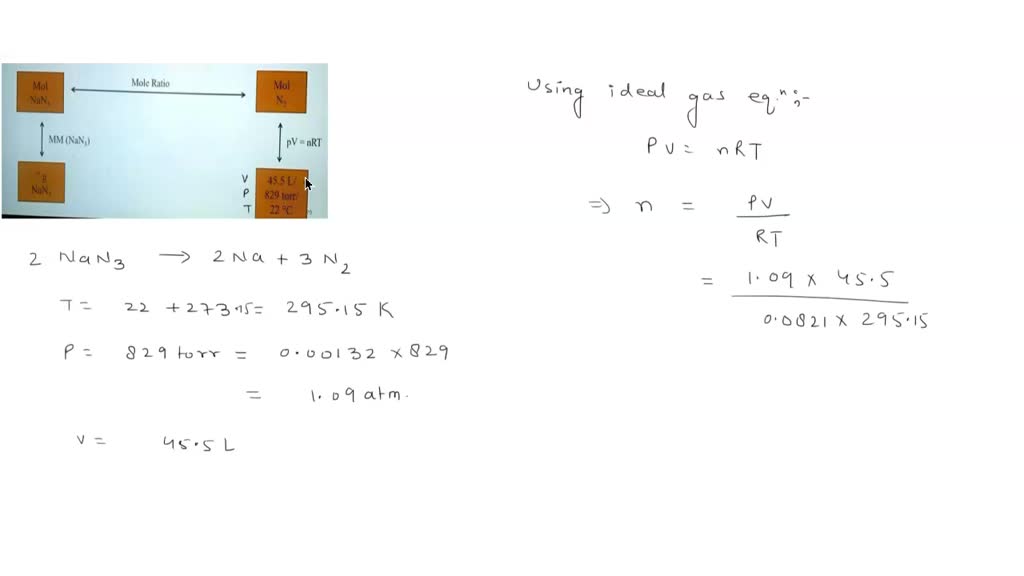 Mole Ratio
Mol
NaN₃
Mol
N₂
MM (NaN₃)
pV = nRT
g
NaN₃
V
P
T
45.5 L/
829 torr/
22 °C
2 NaN₃ → 2 Na + 3 N₂
T = 22 + 273.15 = 295.15 K
P = 829 torr = 0.00132 × 829
= 1.09 atm.
V = 45.5 L
Using ideal gas eq.ⁿ :-
PV = nRT
⇒ n = PV
RT
= 1.09 × 45.5
0.0821 × 295.15